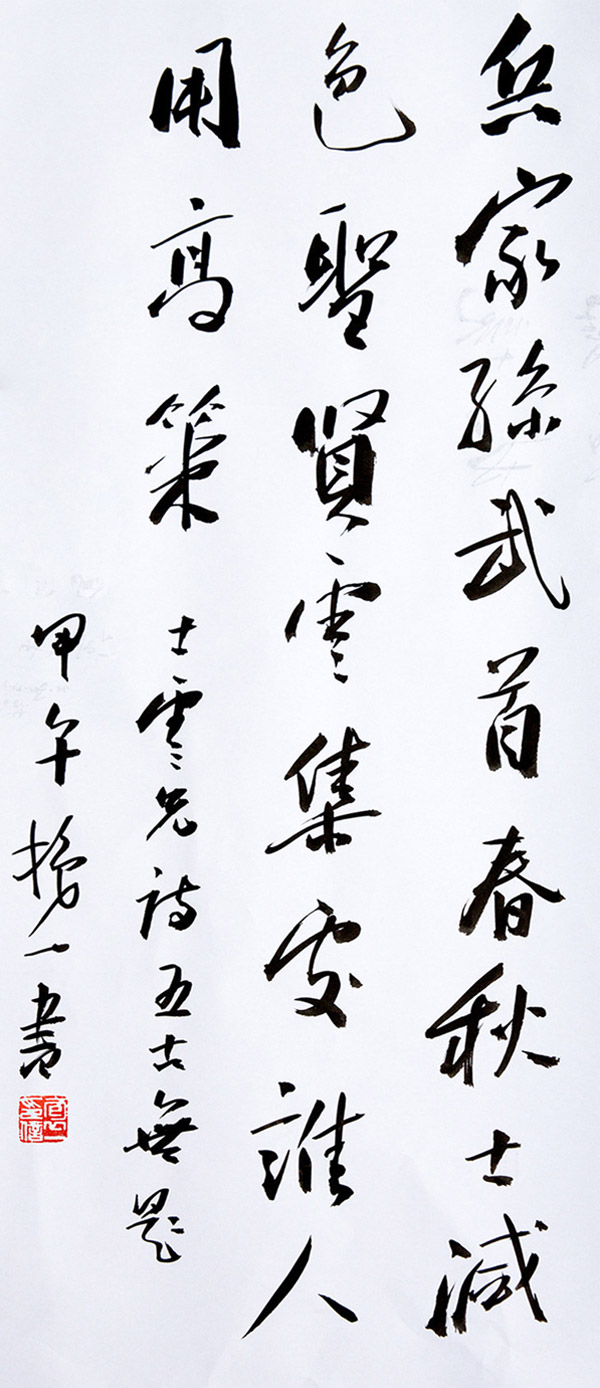 兵家孫武首春秋士減
色聖賢雲集處誰人
用高策
士雲兄詩五古無題
甲午 一書